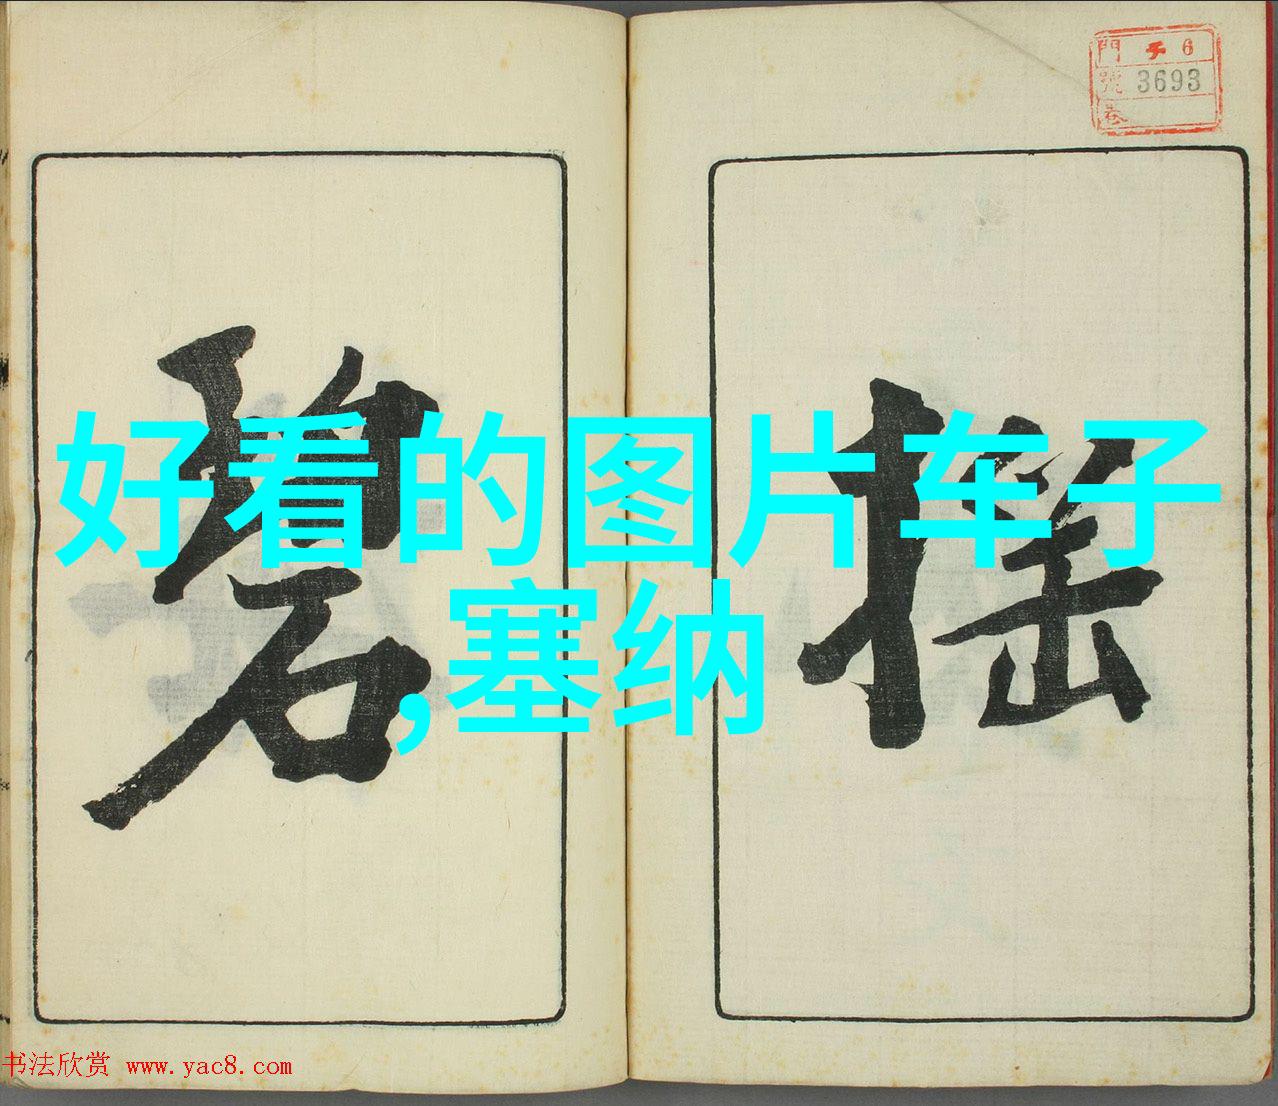 門 子 6
號 3693
卷
搖
碧
好看的图片车子
,塞纳
书法欣赏 www.yac8.com